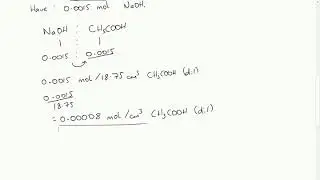 Have : 0.0015 mol NaOH.
NaOH : CH₃COOH
1 : 1
0.0015 : 0.0015
0.0015 mol/18.75 cm³ CH₃COOH (dil)
0.0015
18.75
= 0.00008 mol/cm³ CH₃COOH (dil)